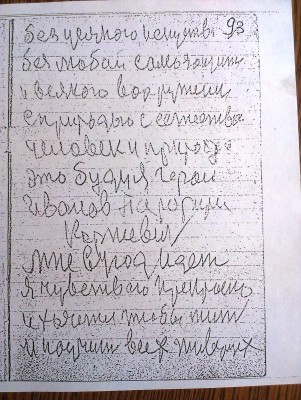 без усякого искуства 93
без любой самозащиты
и всякого вооружения
с природою с естества
человек и природа
это будуя герои
Иванов народил
Корнеевич
мне в год идет
я чувствою прекрасно
и хочется чтобы жить
и научит всех живых